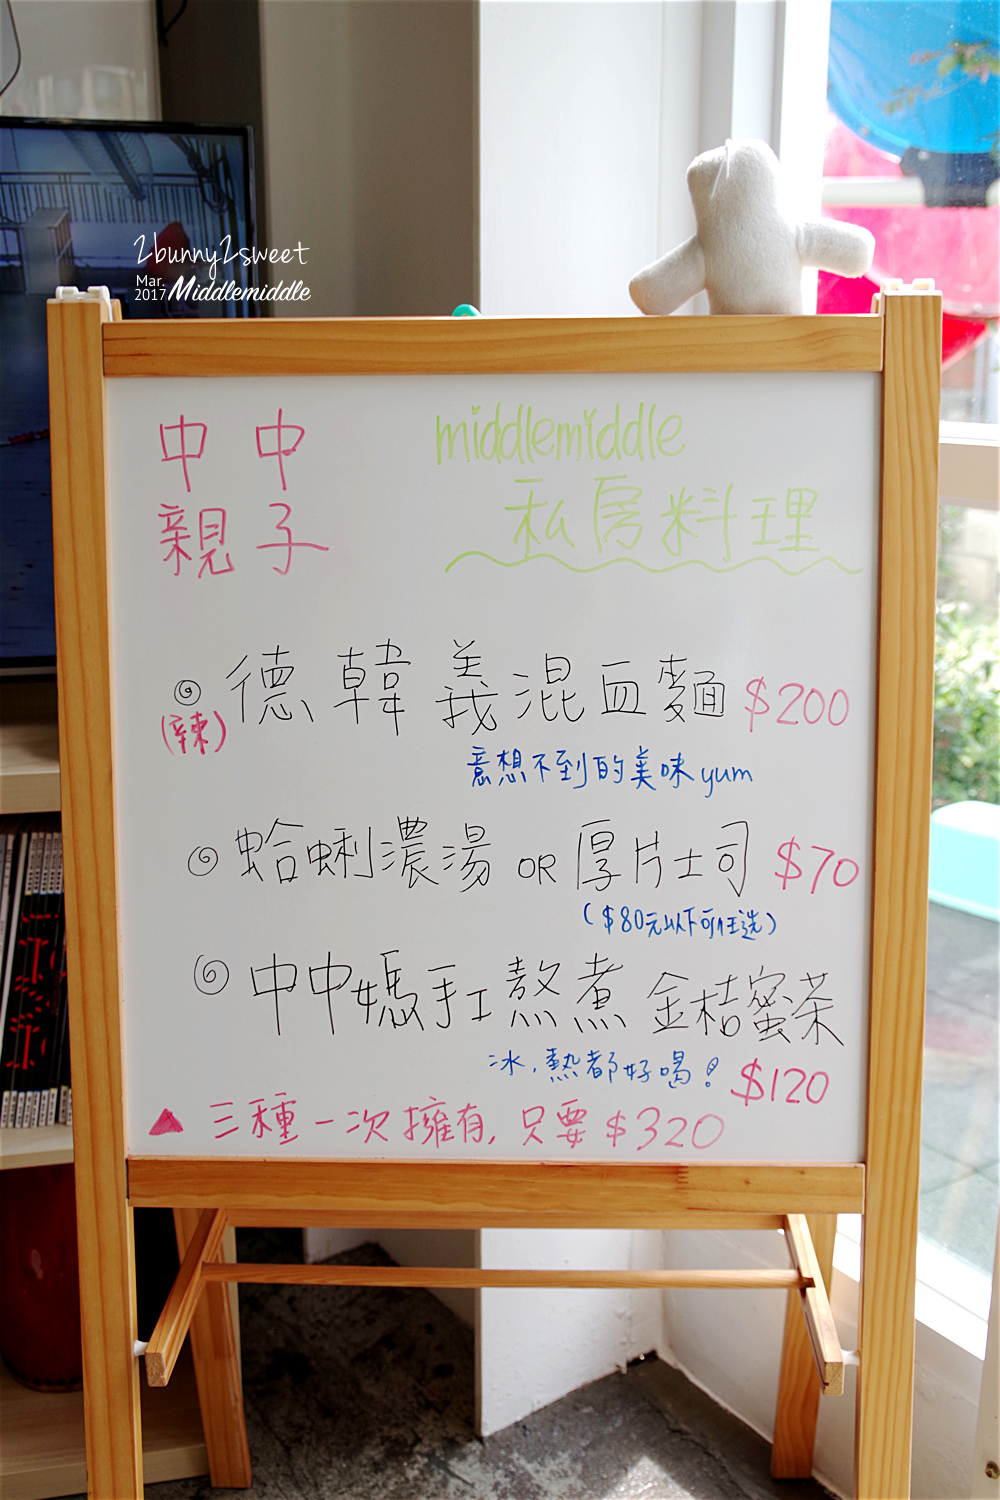 2bunny2sweet
Mar.
2017 Middlemiddle
中中
親子
middlemiddle
私房料理
德韓義混血麵 $200
(辣)
意想不到的美味 yum
蛤蜊濃湯 OR 厚片土司 $70
($80元以下可任選)
中中媽手工熬煮 金桔蜜茶
冰,熱都好喝! $120
▲ 三種一次擁有, 只要 $320